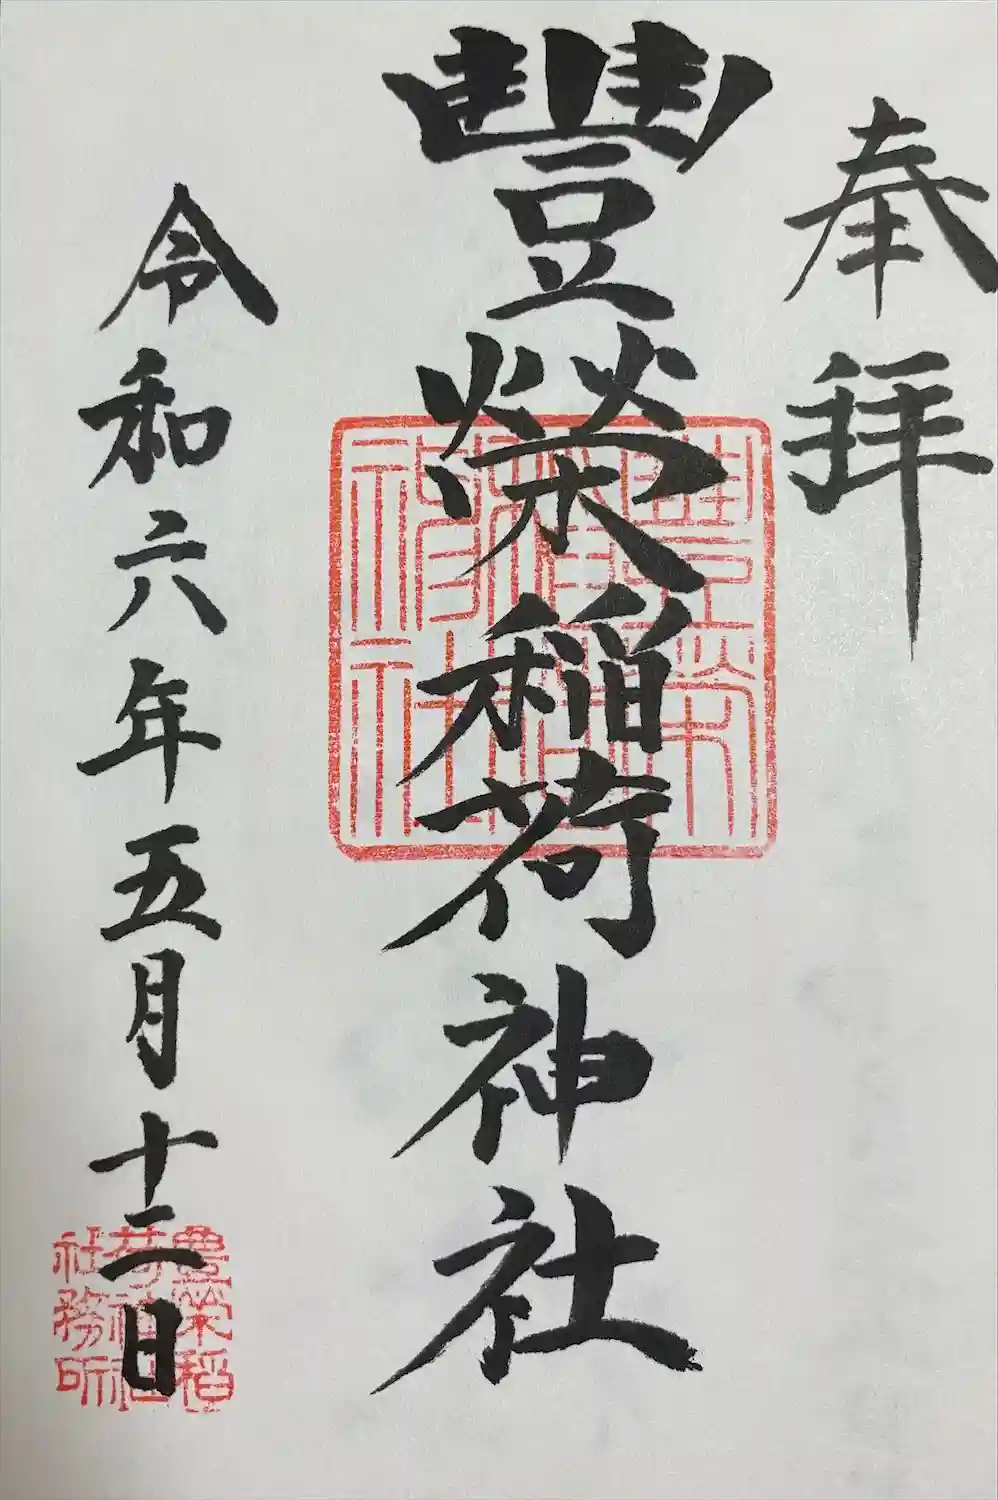 奉拝
豐榮稲荷神社
豊榮稲荷神社
令和六年五月十二日
豊榮稲荷神社社務所